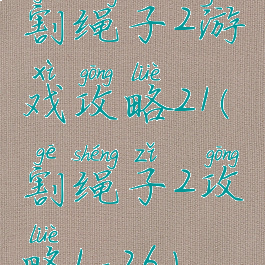 割绳子2游
xì gōng lüè
戏攻略21(
gē shéng zǐ gōng
割绳子2攻
lüè
略1-26)